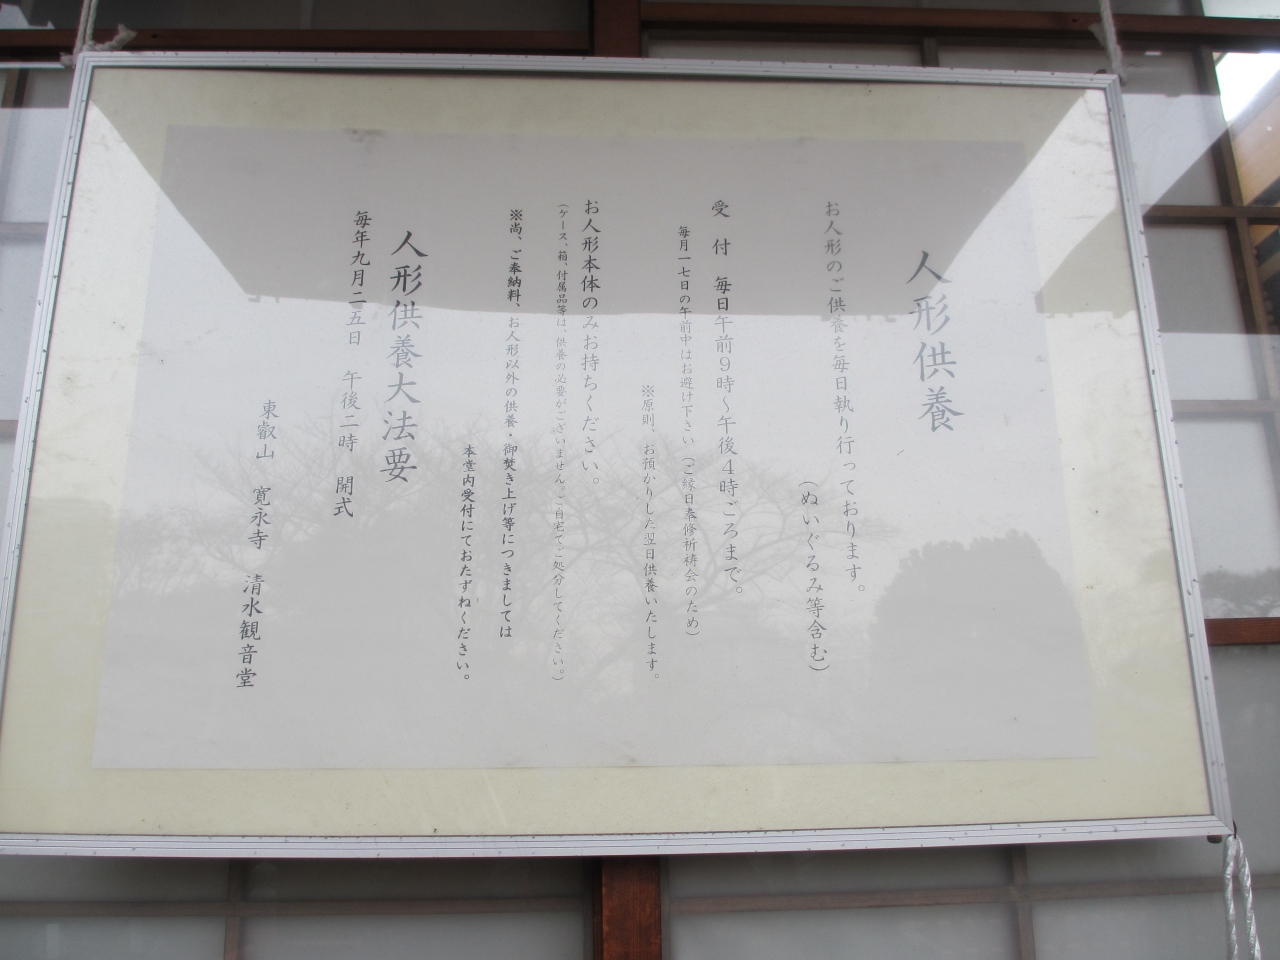 人形供養
お人形のご供養を毎日執り行っております。
(ぬいぐるみ等含む)
受 付 毎日午前9時~午後4時ごろまで。
毎月一七日の午前中はお避け下さい(ご縁日奉修祈祷会のため)
※原則、お預かりした翌日供養いたします。
お人形本体のみお持ちください。
(ケース、箱、付属品等は、供養の必要がございません。ご自宅でご処分してください。)
※尚、ご奉納料、お人形以外の供養・御焚き上げ等につきましては
本堂内受付にておたずねください。
人形供養大法要
毎年九月二五日 午後二時 開式
東叡山 寛永寺 清水観音堂